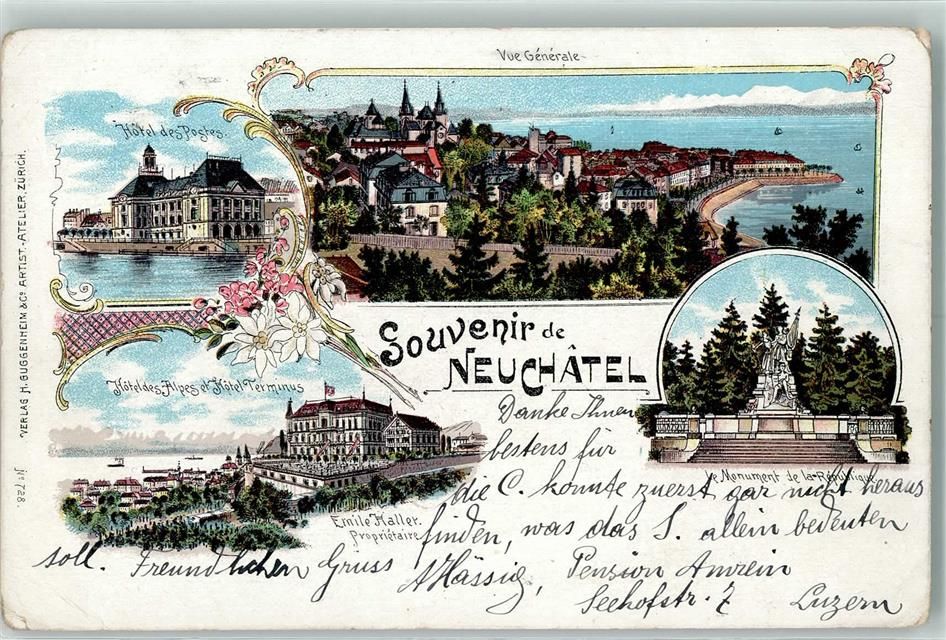 Vue Générale
Hôtel des Postes.
Souvenir de
NEUCHÂTEL
Hôtel des Alpes et Hôtel Terminus
Emile Haller.
Propriétaire
Le Monument de la République
VERLAG H. GUGGENHEIM & Co. ARTIST.-ATELIER, ZÜRICH.
No. 728.
Danke Ihnen
bestens für
die C. konnte zuerst gar nicht heraus
finden, was das S. allein bedeuten
soll. Freundlichen Gruss AHässig, Pension Amrein
Seehofstr. 7 Luzern